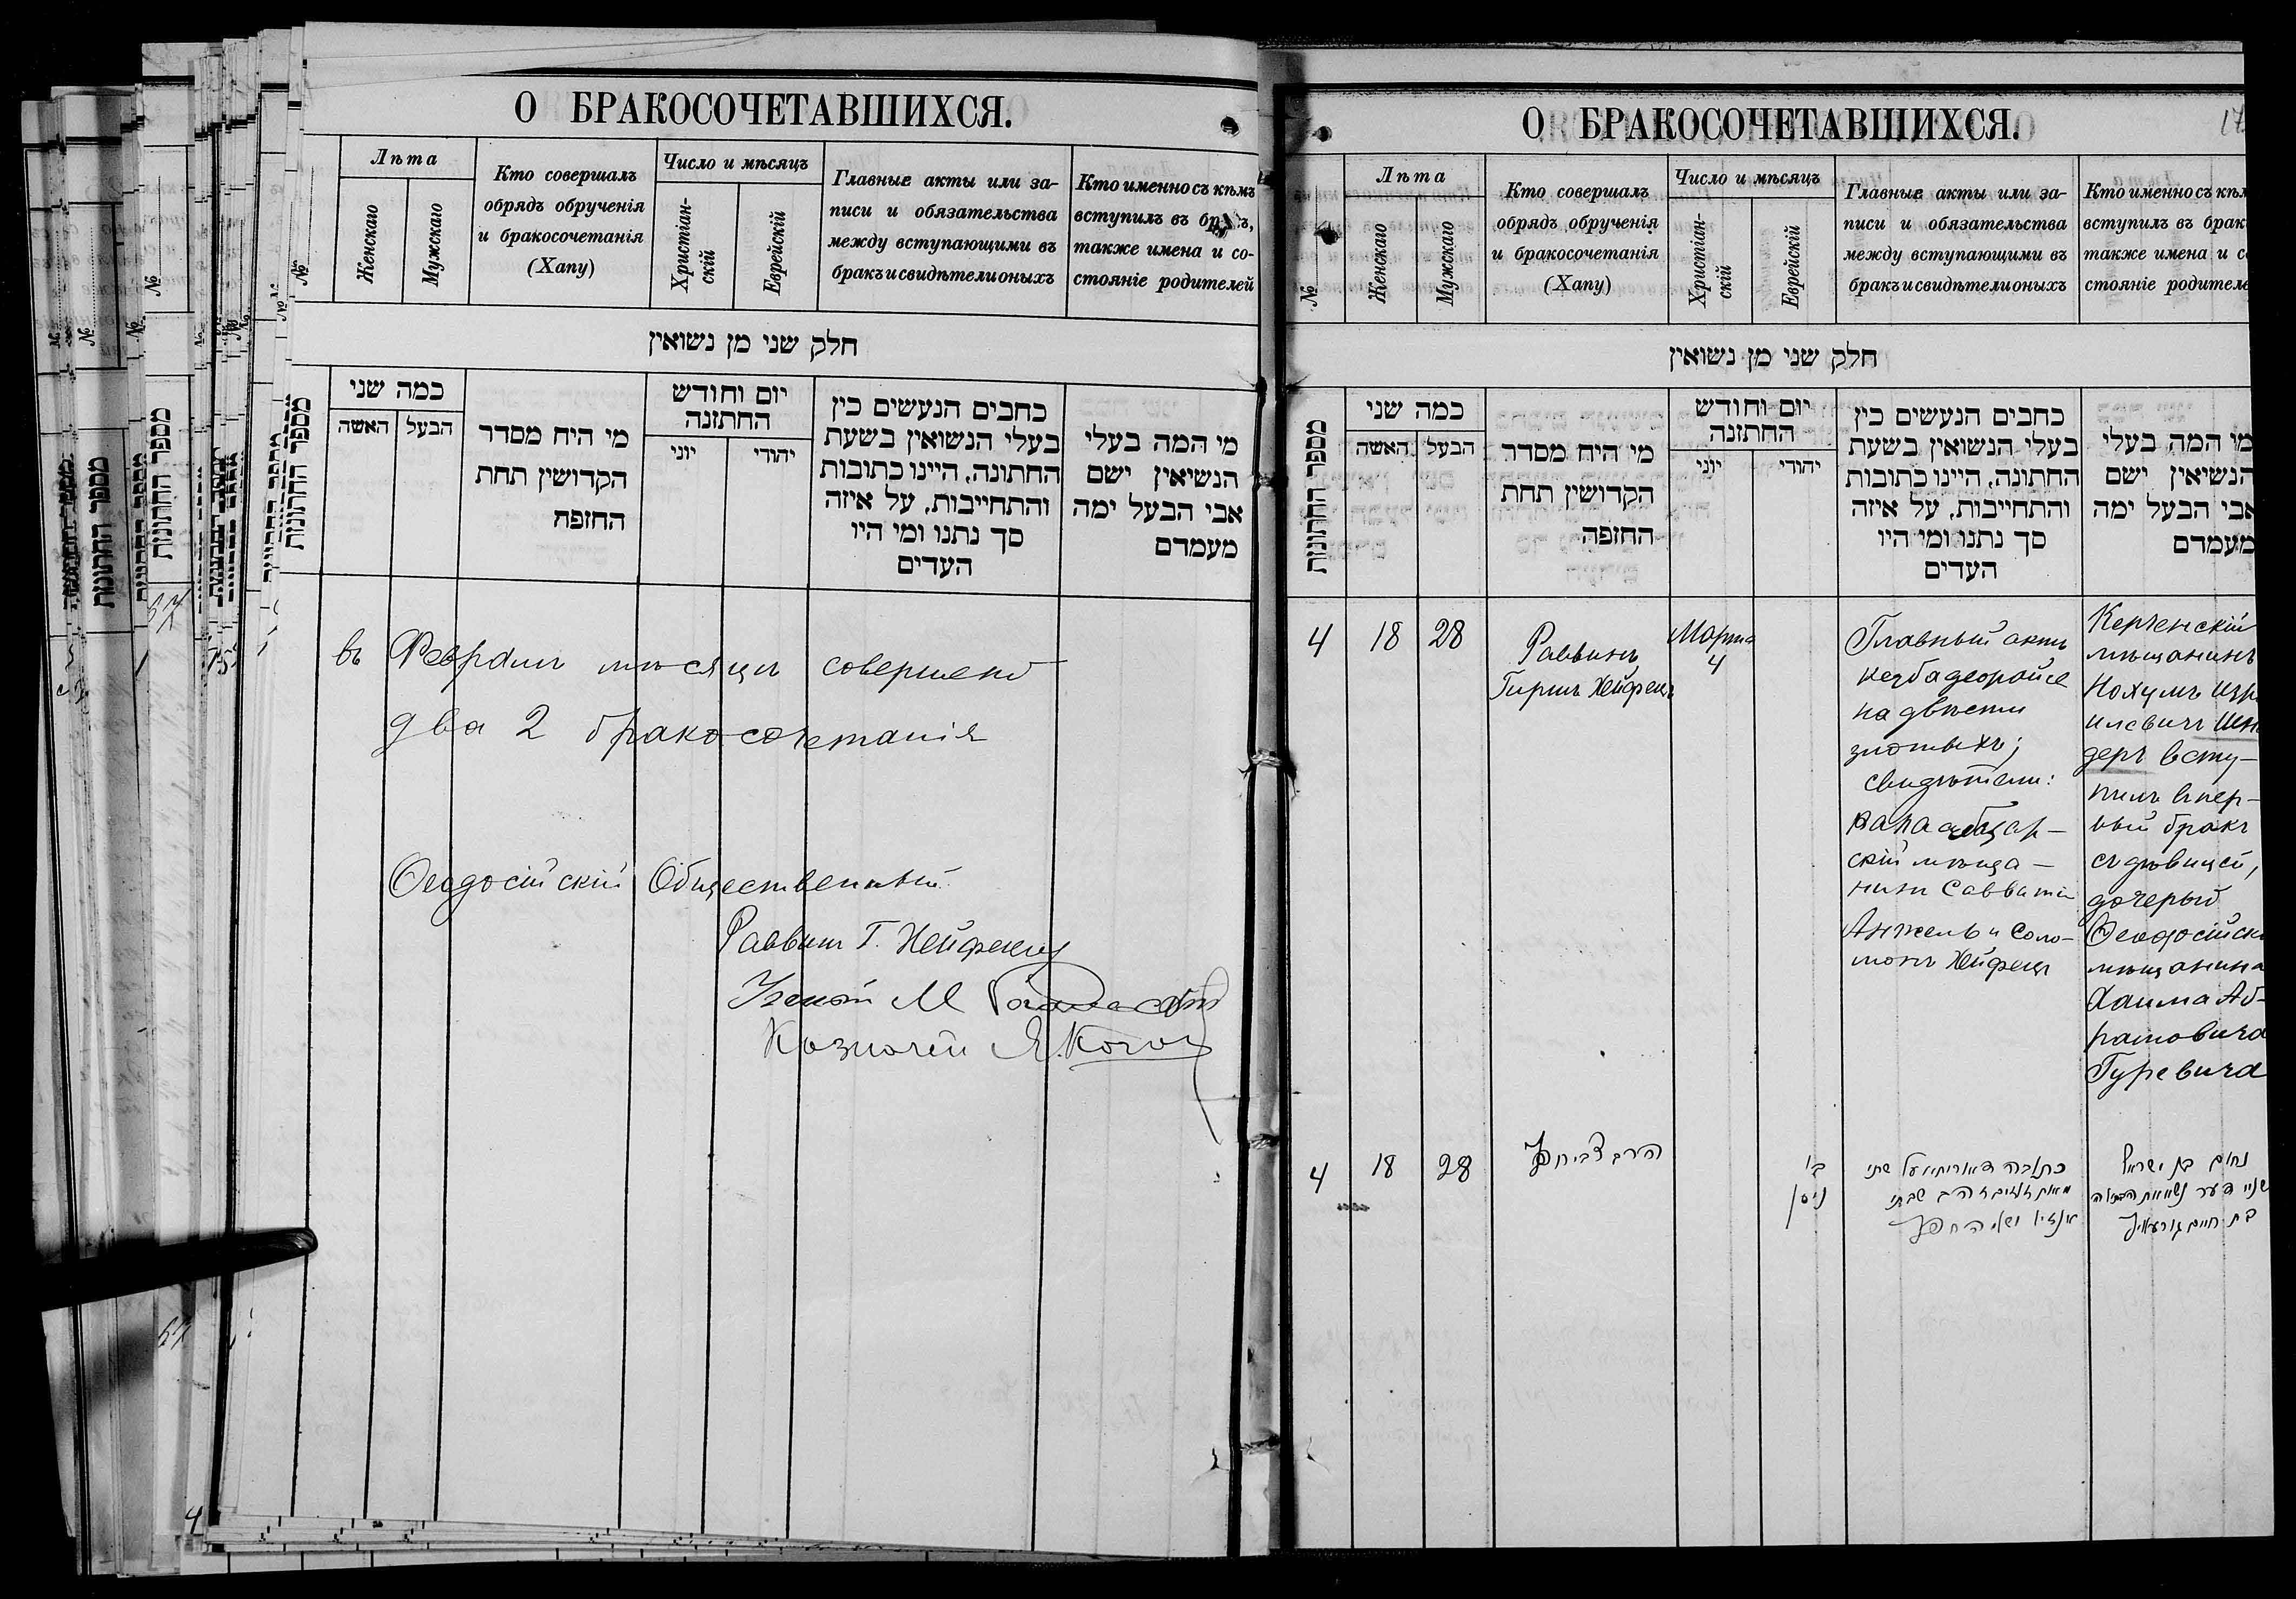 О БРАКОСОЧЕТАВШИХСЯ.
№
Лѣта
Женскаго
Мужскаго
Кто совершалъ
обрядъ обрученія
и бракосочетанія
(Хапу)
Число и мѣсяцъ
Христіан-
скій
Еврейскій
Главные акты или за-
писи и обязательства
между вступающими въ
бракъ и свидѣтели оныхъ
Кто именно съ кѣмъ
вступилъ въ бракъ,
также имена и со-
стояніе родителей
חלק שני מן נשואין
מספר החתונות
כמה שני
האשה
הבעל
מי היח מסדר
הקדושין תחת
החזפה
יום וחודש
החתזנה
יוני
יהודי
כחבים הנעשים כין
בעלי הנשואין בשעת
החתונה, היינו כתובות
והתחייבות, על איזה
סך נתנו ומי היו
העדים
מי המה בעלי
הנשיאין ישם
אבי הבעל ימה
מעמדם
въ Февралъ мѣсяцъ совершено
два 2 бракосочетанія
Ѳеодосійскій Общественный
Раввинъ Г. Хейфецъ
М
Казначей Я. Коган
О БРАКОСОЧЕТАВШИХСЯ.
17
№
Лѣта
Женскаго
Мужскаго
Кто совершалъ
обрядъ обрученія
и бракосочетанія
(Хапу)
Число и мѣсяцъ
Христіан-
скій
Еврейскій
Главные акты или за-
писи и обязательства
между вступающими въ
бракъ и свидѣтели оныхъ
Кто именно съ кѣм
вступилъ въ брак
также имена и с
стояніе родителе
חלק שני מן נשואין
מספר החתונות
כמה שני
האשה
הבעל
מי היח מסדר
הקדושין תחת
החזפה
יום וחודש
החתזנה
יוני
יהודי
כחבים הנעשים כין
בעלי הנשואין בשעת
החתונה, היינו כתובות
והתחייבות, על איזה
סך נתנו ומי היו
העדים
מי המה בעלי
הנשיאין ישם
אבי הבעל ימה
מעמדם
4
18
28
Раввинъ
Гиршъ Хейфецъ
Марта
4
Главный актъ
кезбадеорайсе
на двѣсти
злотыхъ;
свидѣтели:
скій мѣща-
нинъ Савватій
Анжель и Соло-
монъ Хейфецъ
Керченскій
мѣщанинъ
Нохумъ Изра
илевичъ Шен
деръ всту-
пилъ впер-
вый бракъ
съ дѣвицей,
дочерью
Ѳеодосійска
мѣщанина
Хаима Аб-
рамовича
Гуревича
4
18
28
הרב צבי חפץ
ניסן
כתובה דאורייתא על שתי
נחום בן ישראל